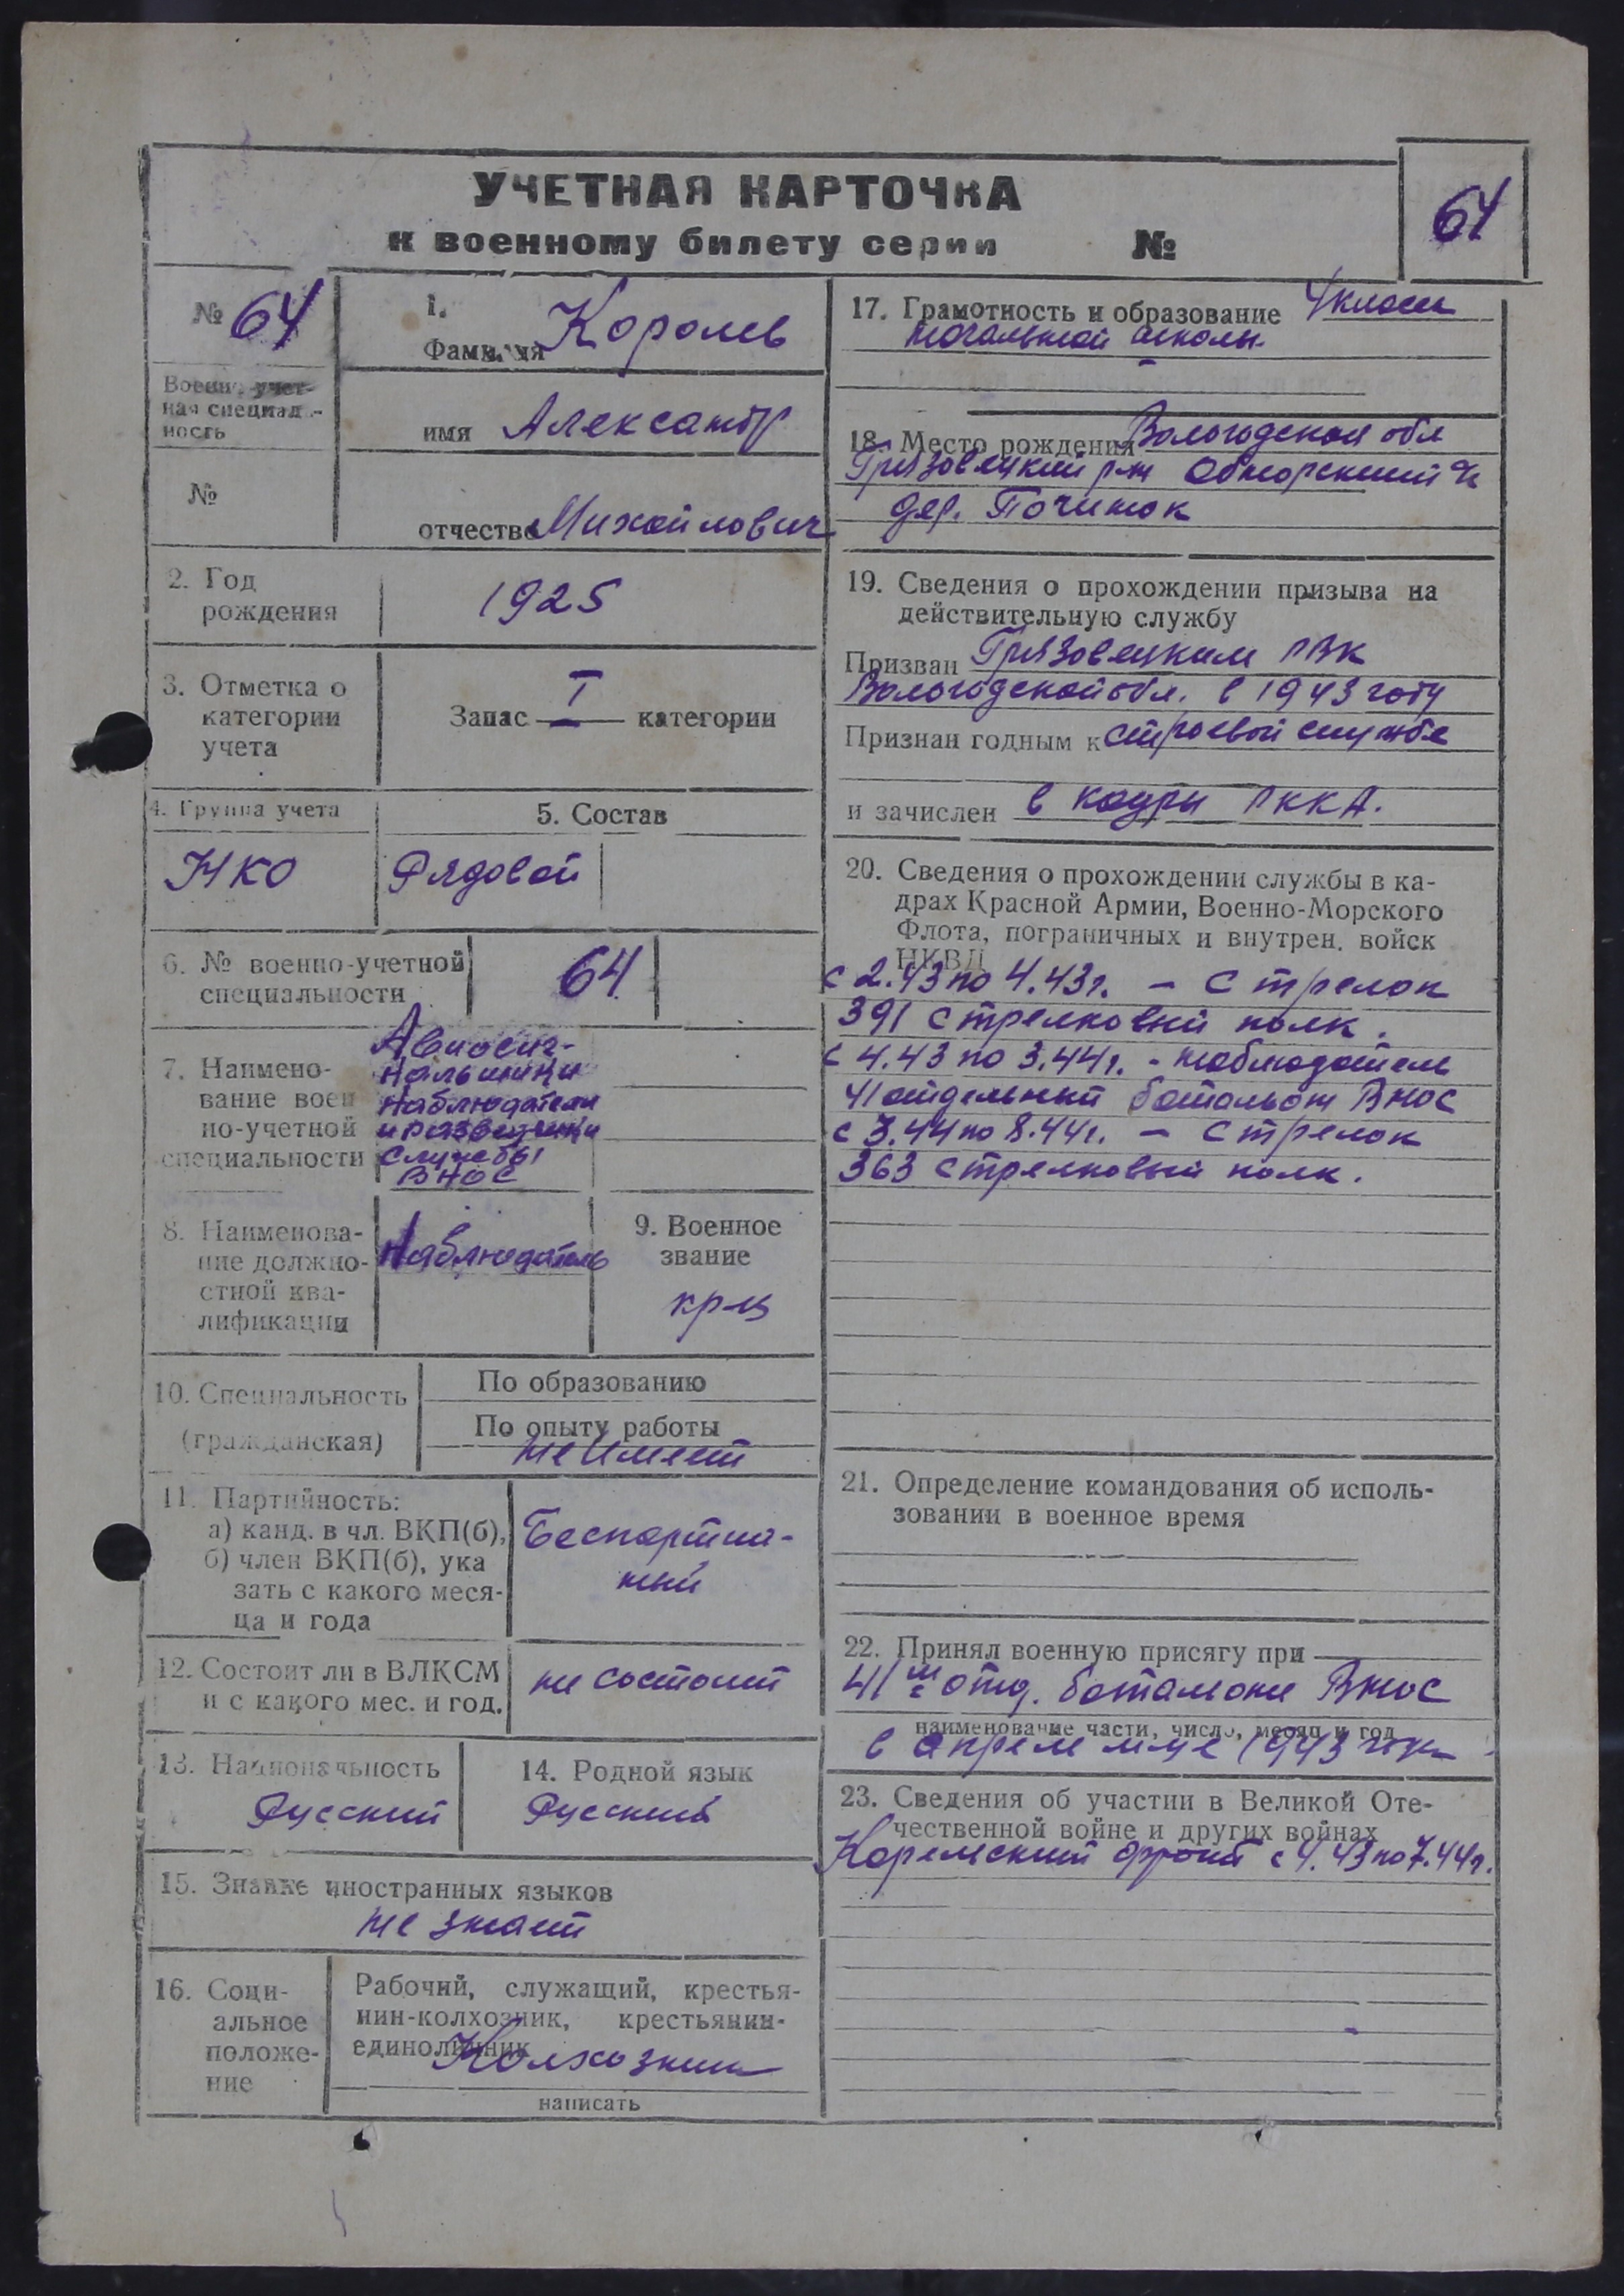 УЧЕТНАЯ КАРТОЧКА
к военному билету серии №
64
№ 64
Военн. учет-
ная специаль-
ность
№
1.
Фамилия Королев
имя Александр
отчество Михайлович
2. Год
рождения
1925
3. Отметка о
категории
учета
Запас I категории
4. Группа учета
НКО
5. Состав
Рядовой
6. № военно-учетной
специальности
64
7. Наимено-
вание воен
но-учетной
специальности
Авиосиг-
нальщики
наблюдатели
и разведчики
службы
ВНОС
8. Наименова-
ние должно-
стной ква-
лификации
Наблюдатель
9. Военное
звание
кр-ц
10. Специальность
(гражданская)
По образованию
По опыту работы
не имеет
11. Партийность:
а) канд. в чл. ВКП(б),
б) член ВКП(б), ука
зать с какого меся-
ца и года
Беспартий-
ный
12. Состоит ли в ВЛКСМ
и с какого мес. и год.
не состоит
13. Национальность
Русский
14. Родной язык
Русский
15. Знание иностранных языков
не знает
16. Соци-
альное
положе-
ние
Рабочий, служащий, крестья-
нин-колхозник, крестьянин-
единоличник
Колхозник
написать
17. Грамотность и образование 4 класса
начальной школы
18. Место рождения Вологодская обл
Грязовецкий р-н Обнорский
дер. Починок
19. Сведения о прохождении призыва на
действительную службу
Призван Грязовецким РВК
Вологодской обл. в 1943 году
Признан годным к строевой службе
и зачислен в кадры РККА.
20. Сведения о прохождении службы в ка-
драх Красной Армии, Военно-Морского
Флота, пограничных и внутрен. войск
НКВД
с 2.43 по 4.43г. – Стрелок
391 стрелковый полк.
с 4.43 по 3.44г. - наблюдатель
41 отдельный батальон ВНОС
с 3.44 по 8.44г. – Стрелок
363 стрелковый полк.
21. Определение командования об исполь-
зовании в военное время
22. Принял военную присягу при
41м отд. батальоне ВНОС
наименование части, число, месяц и год
в апреле м-це 1943 года
23. Сведения об участии в Великой Оте-
чественной войне и других войнах
Карельский фронт с 4.43 по 7.44г.